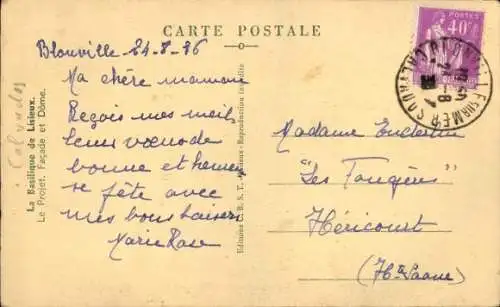 CARTE POSTALE
Blonville 24-8-36
Ma chère maman
Reçois mes meil
leurs vœux de
bonne et heureu
se fête avec
mes bons baisers
Marie Rose
Madame Enderlin
"Les Fougères"
Héricourt
(Hte Saone)
POSTES
40c
Calvados
La Basilique de Lisieux.
Le Projet. Façade et Dôme.
Reproduction interdite